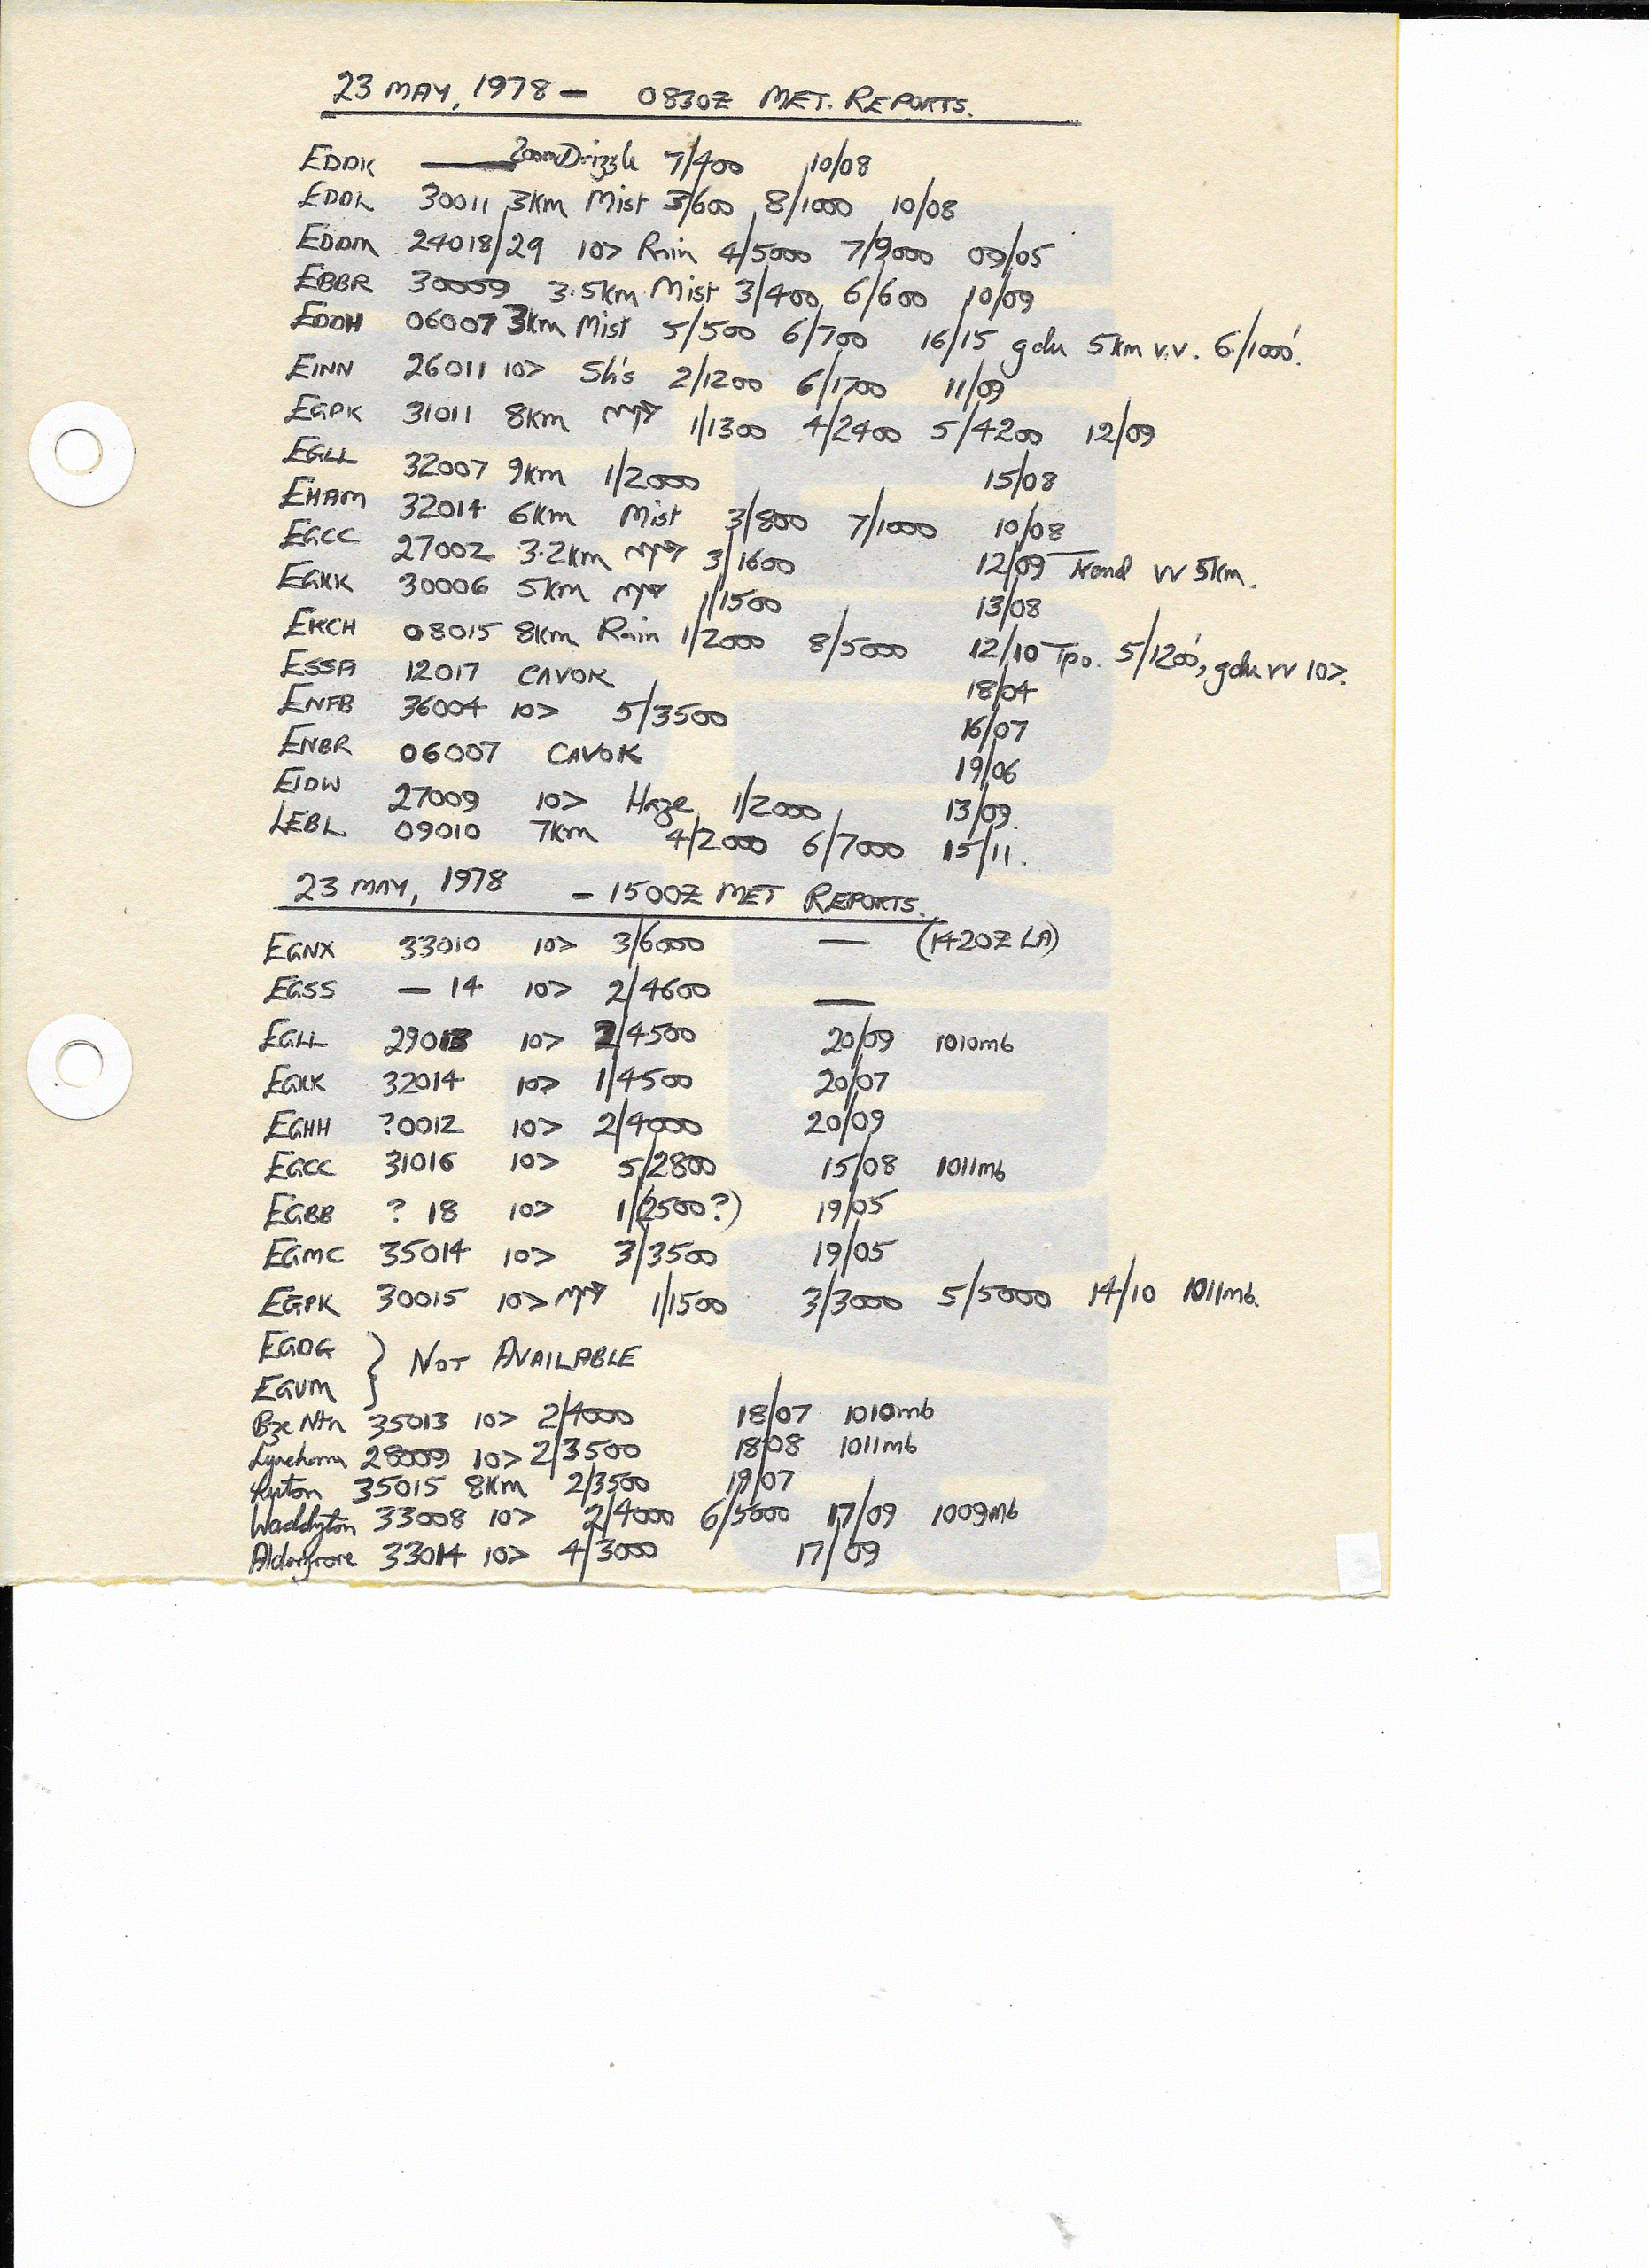 23 MAY, 1978 - 0830Z MET. REPORTS.
EDDK — 200m Drizzle 7/400 10/08
EDDL 30011 3km Mist 3/600 8/1000 10/08
EDDM 24018/29 10> Rain 4/5000 7/9000 09/05
EBBR 30009 3.5km Mist 3/400 6/600 10/09
EDDH 06007 3km Mist 5/500 6/700 16/15 gdu 5km v.v. 6/1000'.
EINN 26011 10> Sh's 2/1200 6/1700 11/09
EGPK 31011 8km 1/1300 4/2400 5/4200 12/09
EGLL 32007 9km 1/2000 15/08
EHAM 32014 6km Mist 3/800 7/1000 10/08
EGCC 27002 3.2km 3/1600 12/09 Trend vv 5km.
EGKK 30006 5km 1/1500 13/08
EKCH 08015 8km Rain 1/2000 8/5000 12/10 Tpo. 5/1200', gdu vv 10>.
ESSA 12017 CAVOK 18/04
ENFB 36004 10> 5/3500 16/07
ENBR 06007 CAVOK 19/06
EIDW 27009 10> Haze 1/2000 13/09.
LEBL 09010 7km 4/2000 6/7000 15/11.
23 MAY, 1978 - 1500Z MET REPORTS.
EGNX 33010 10> 3/6000 — (1420Z LA)
EGSS — 14 10> 2/4600 —
EGLL 29013 10> 2/4500 20/09 1010mb
EGKK 32014 10> 1/4500 20/07
EGHH ?0012 10> 2/4000 20/09
EGCC 31016 10> 5/2800 15/08 1011mb
EGBB ? 18 10> 1/(2500?) 19/05
EGMC 35014 10> 3/3500 19/05
EGPK 30015 10> 1/1500 3/3000 5/5000 14/10 1011mb.
EGDG } NOT AVAILABLE
EGUM
Bze Ntn 35013 10> 2/4000 18/07 1010mb
Lyneham 28009 10> 2/3500 18/08 1011mb
Luton 35015 8km 2/3500 19/07
Waddgton 33008 10> 2/4000 6/5000 17/09 1009mb
Aldergrove 33014 10> 4/3000 17/09